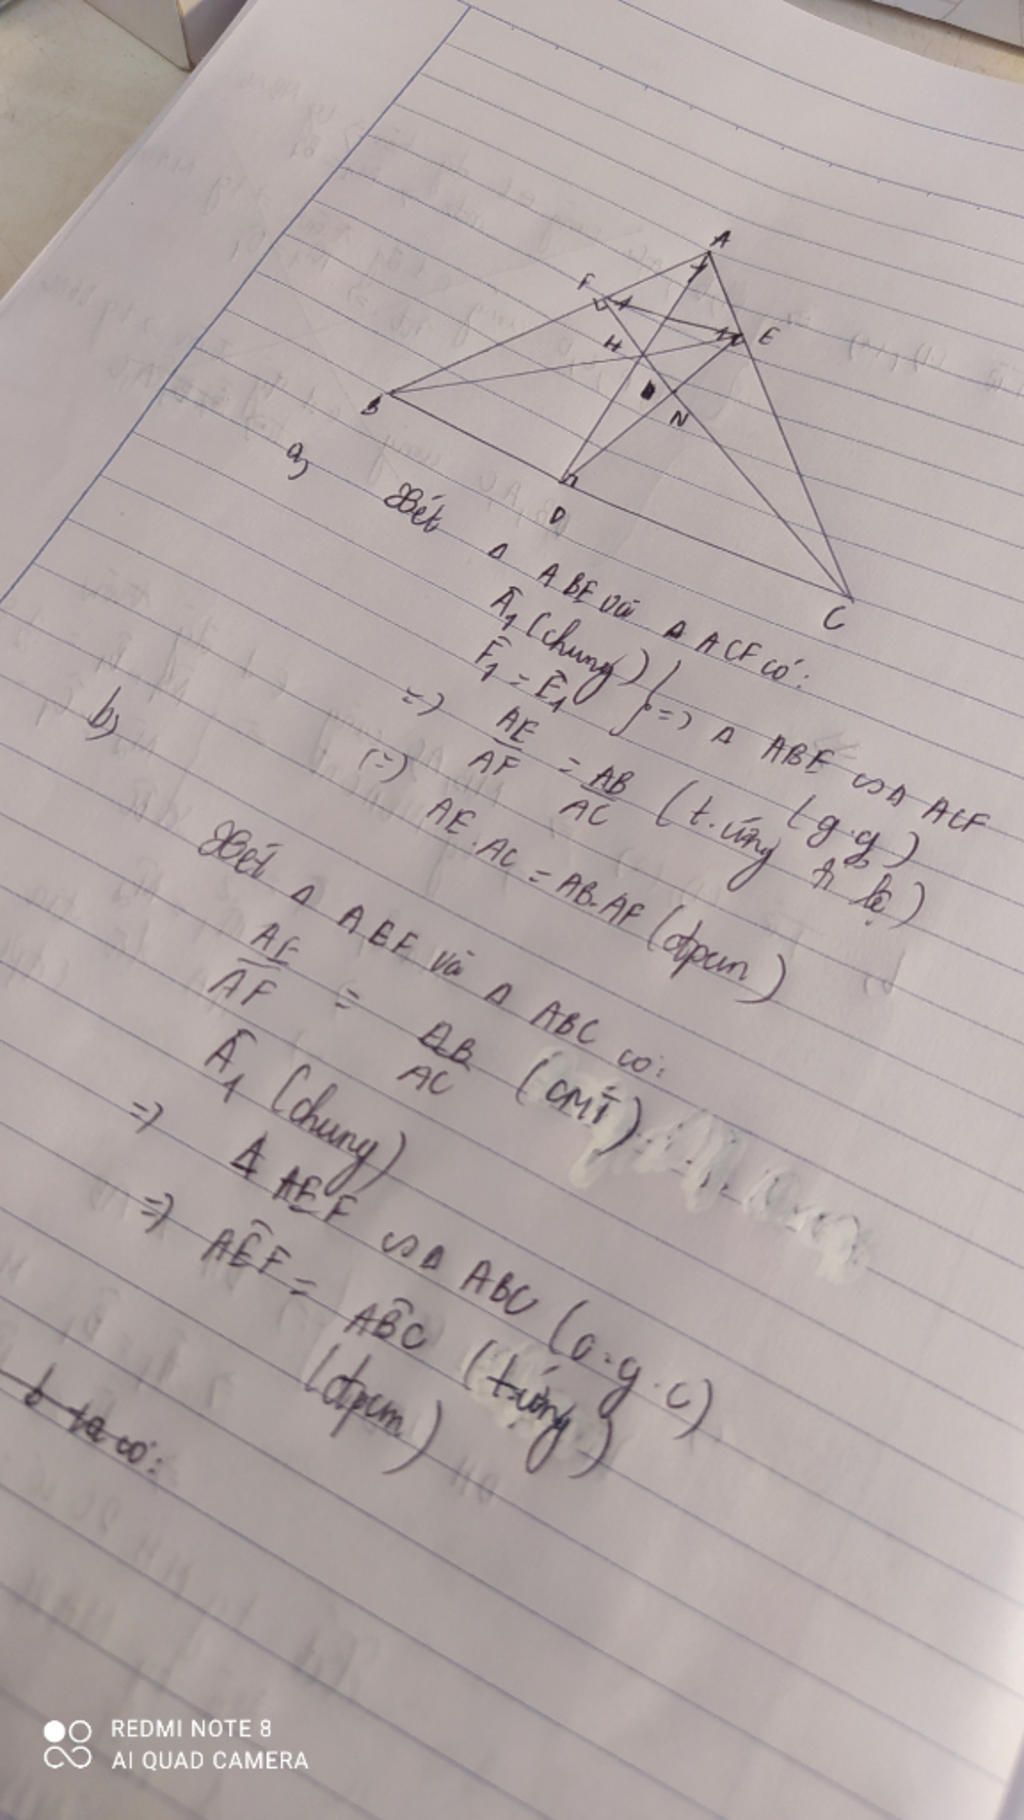 A
F
1
E
H
B
N
D
C
a,
Xét Δ ABE và Δ ACF có:
Â₁ (chung)
F̂₁ = Ê₁
} => Δ ABE ∽ Δ ACF
(g.g)
=> AE/AF = AB/AC (t.ứng tỉ lệ)
(=) AE.AC = AB.AF (đpcm)
b)
Xét Δ AEF và Δ ABC có:
AE/AF = AB/AC (CMT)
Â₁ (chung)
=> Δ AEF ∽ Δ ABC (c.g.c)
=> AÊF = AB̂C (t.ứng)
(đpcm)
b ta có:
REDMI NOTE 8
AI QUAD CAMERA